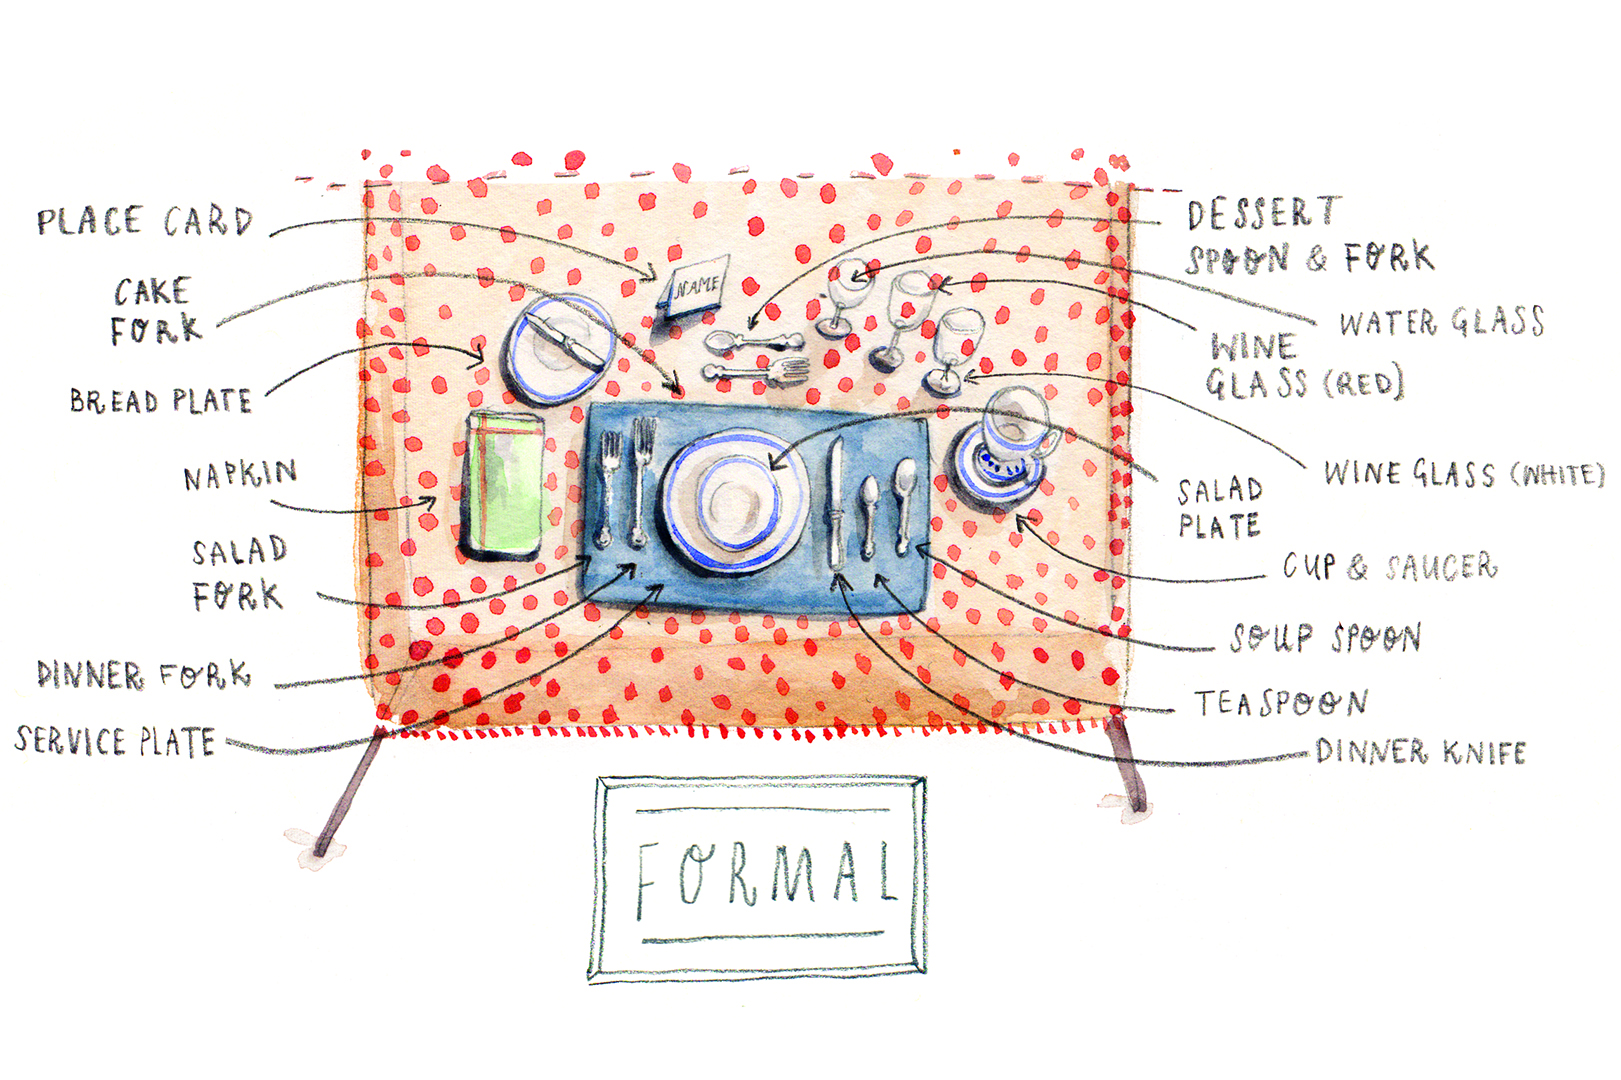 PLACE CARD
CAKE
FORK
BREAD PLATE
NAPKIN
SALAD
FORK
DINNER FORK
SERVICE PLATE
NAME
DESSERT
SPOON & FORK
WATER GLASS
WINE
GLASS (RED)
WINE GLASS (WHITE)
SALAD
PLATE
CUP & SAUCER
SOUP SPOON
TEASPOON
DINNER KNIFE
FORMAL